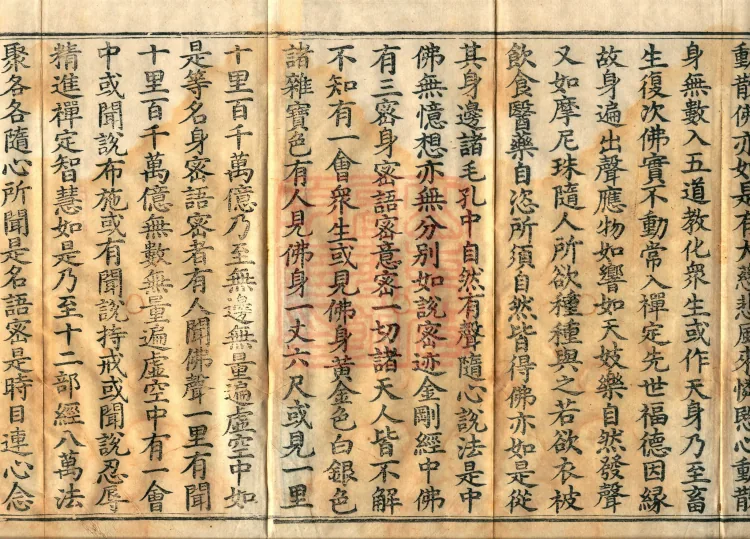 動散佛亦如是有大慈悲風來憐愍心動散
身無數入五道教化衆生或作天身乃至畜
生復次佛實不動常入禪定先世福德因緣
故身遍出聲應物如響如天妓樂自然發聲
又如摩尼珠隨人所欲種種與之若欲衣被
飲食醫藥自恣所須自然皆得佛亦如是從
其身邊諸毛孔中自然有聲隨心說法是中
佛無憶想亦無分別如說密迹金剛經中佛
有三密身密語密意密一切諸天人皆不解
不知有一會衆生或見佛身黃金色白銀色
諸雜寶色有人見佛身一丈六尺或見一里
十里百千萬億乃至無邊無量遍虛空中如
是等名身密語密者有人聞佛聲一里有聞
十里百千萬億無數無量遍虛空中有一會
中或聞說布施或有聞說持戒或聞說忍辱
精進禪定智慧如是乃至十二部經八萬法
聚各各隨心所聞是名語密是時目連心念